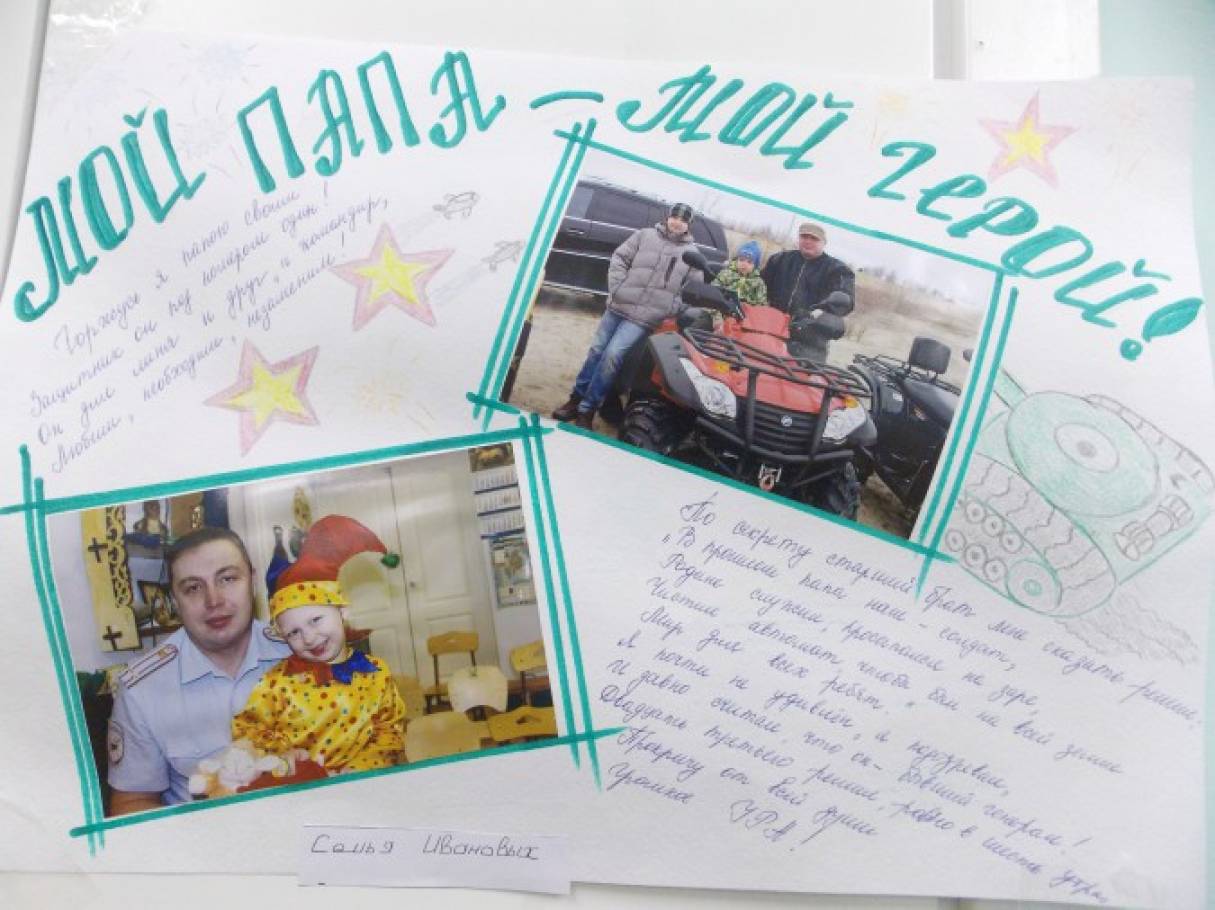 МОЙ ПАПА – МОЙ ГЕРОЙ!
Горжусь я папою своим
Защитник он под номером один!
Он для меня и друг, и командир,
Любим, необходим, незаменим!
По секрету старший брат мне сказать решил:
"В прошлом папа наш - солдат,
Родине служил, просыпался на заре,
Чистил автомат, чтоба был на всей земле
Мир для всех ребят."
Я почти не удивлён, а подозревал,
И давно считал, что он - бывший генерал!
Двадцать третьего решил, ровно в шесть утра,
Прокричу от всей души
Громкое УРА!
Семья Ивановых